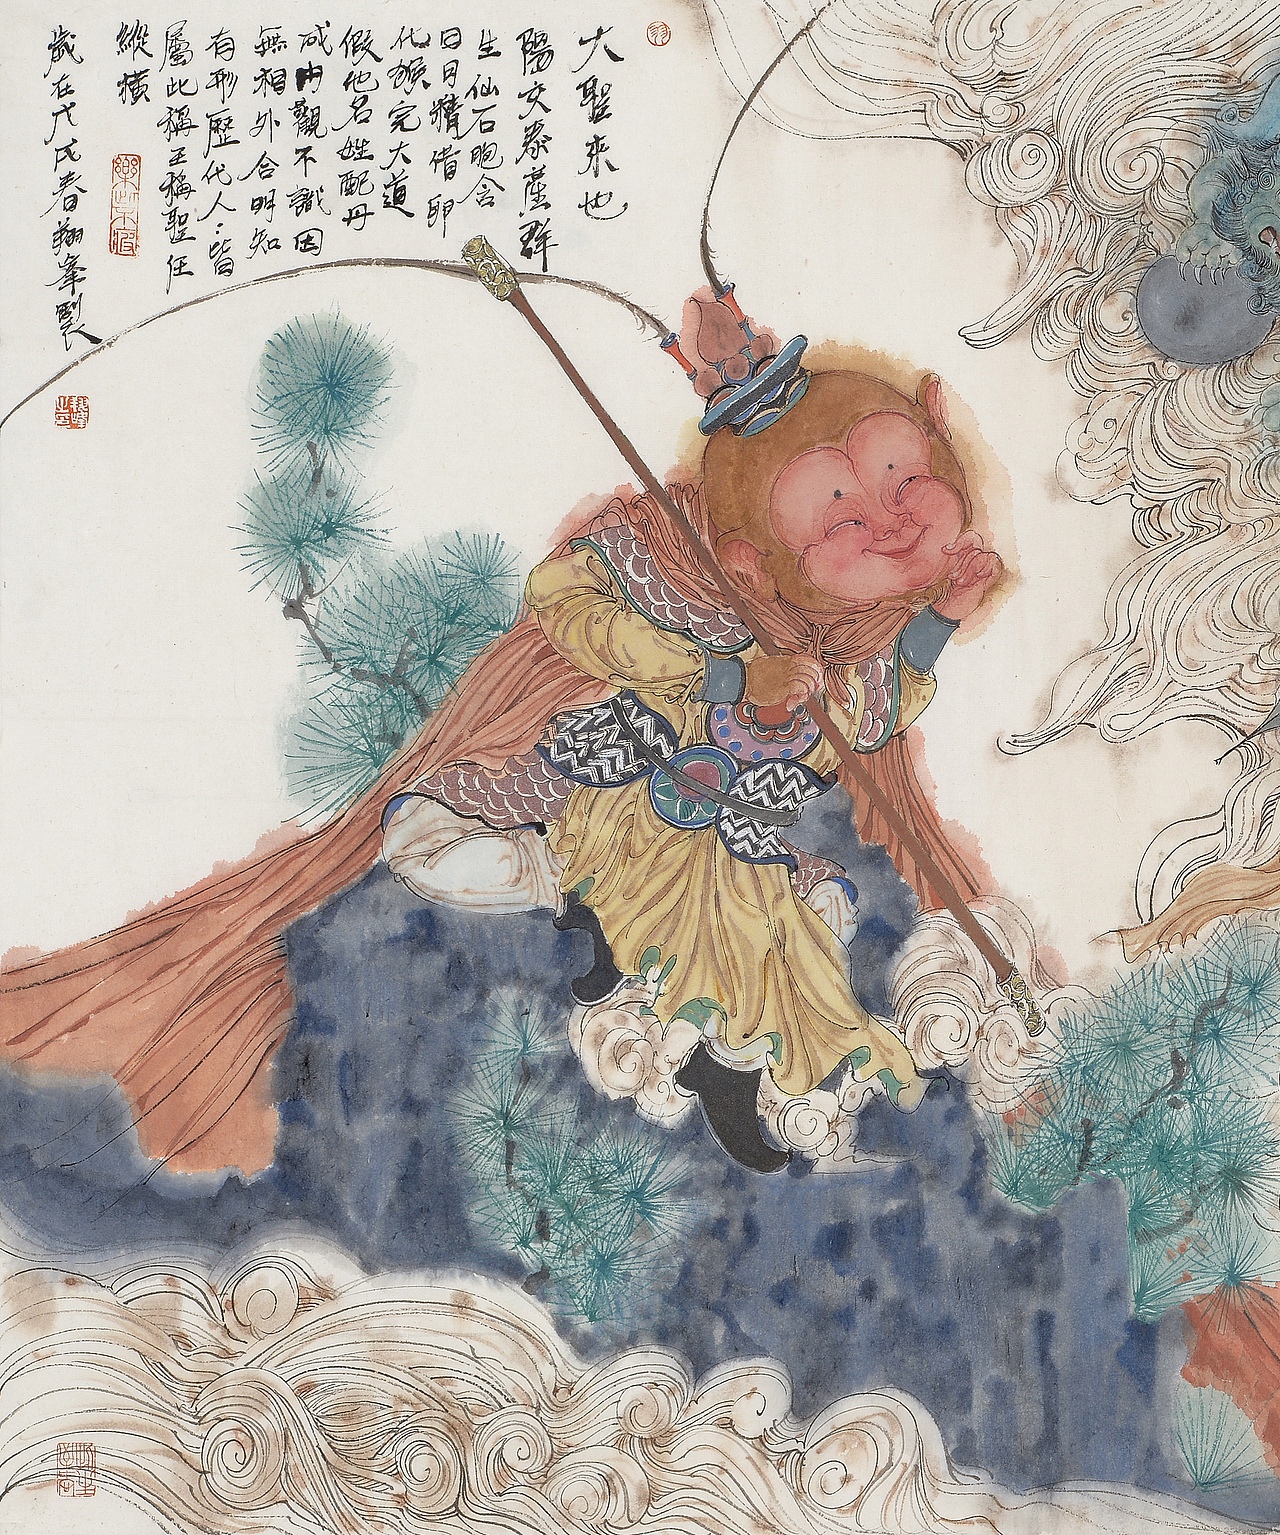 大聖来也
陽交泰產群
生仙石胞含
日月精借卵
化猴完大道
假他名姓配丹
成內觀不識因
無相外合明知
有形歷代人:皆
屬此稱王稱聖任
縱橫
樂此不疲
歲在戊戌春翔峯